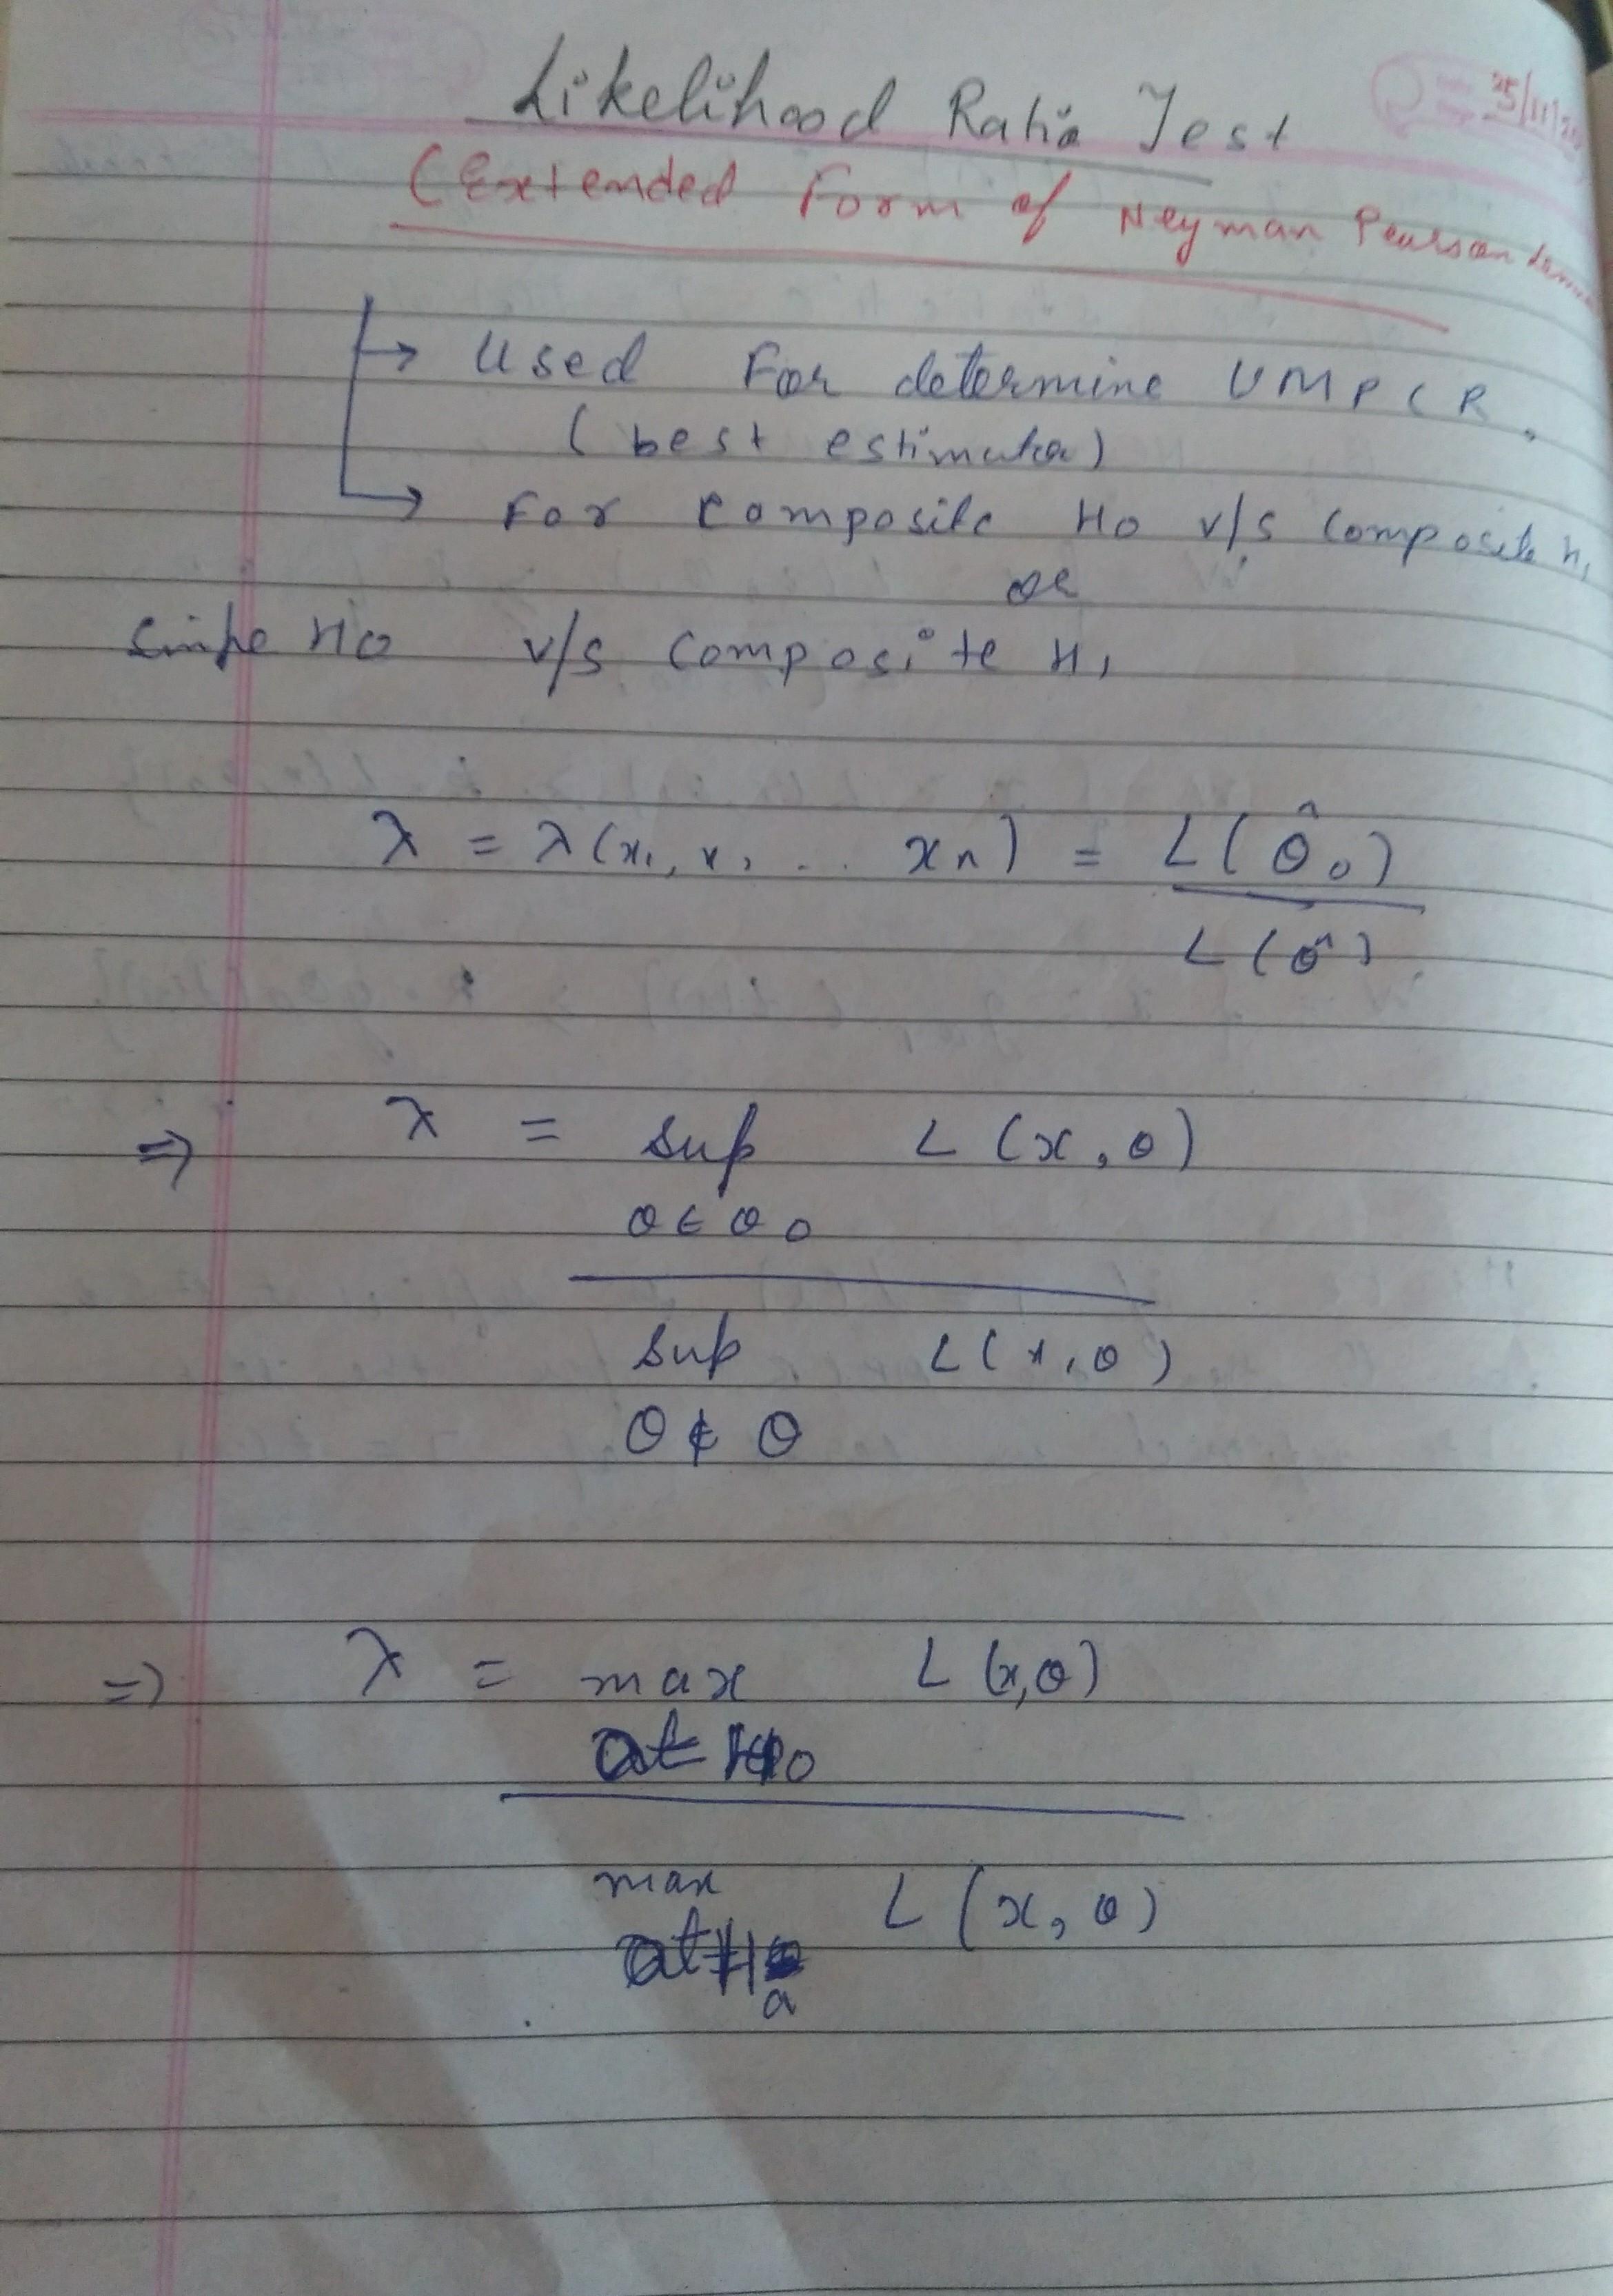 Likelihood Ratio Test
25/11/
(Extended Form of Neyman Pearson Lemma
→ Used For determine UMPCR.
(best estimator)
→ For Composite H0 v/s Composite H1
or
Simpe H0 v/s Composite H1
λ = λ(x1, x2 ... xn) = L(θ̂0)
L(θ̂)
⇒ λ = Sup L(x, θ)
θ ∈ θ0
Sup L(x, θ)
θ ∉ θ
⇒ λ = max L(x, θ)
at H0
max L(x, θ)
at Ha